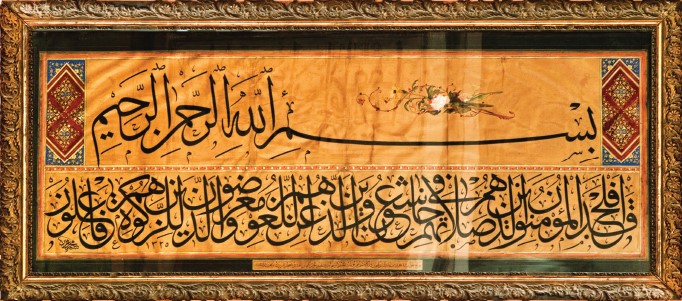 بسم الله الرحمن الرحيم
قد افلح المؤمنون الذين هم في صلاتهم خاشعون والذين هم عن اللغو معرضون والذين هم للزكوة فاعلون